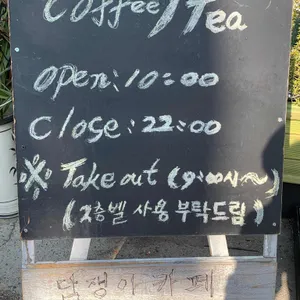 Coffee / Tea
open: 10:00
close: 22:00
※ Take out (9:00시~)
(2층벨 사용 부탁드림)
담쟁이 카페